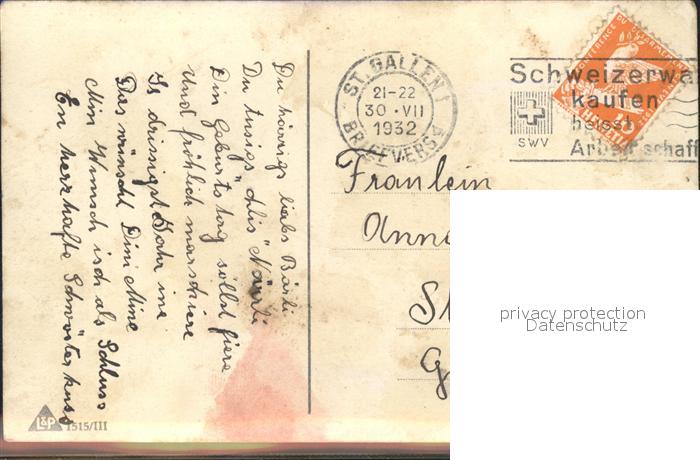 Du härzigs liebs Bärli
Du tusigs chlis "Näärli
Din Geburtstag söllst fiere
Und fröhlich marschiere
Is drissigst Jahr ine.
Das wünscht Dini Mine
Min Wunsch isch als Schluss
En herzhafte Schwösterkuss
ST. GALLEN 1
21-22
30.VII
1932
BRIEFVERSAND
Schweizerwa
kaufen
heisst
Arbeit schaff
SWV
Fräulein
Anna
St
G
privacy protection
Datenschutz
L&P 1515/III